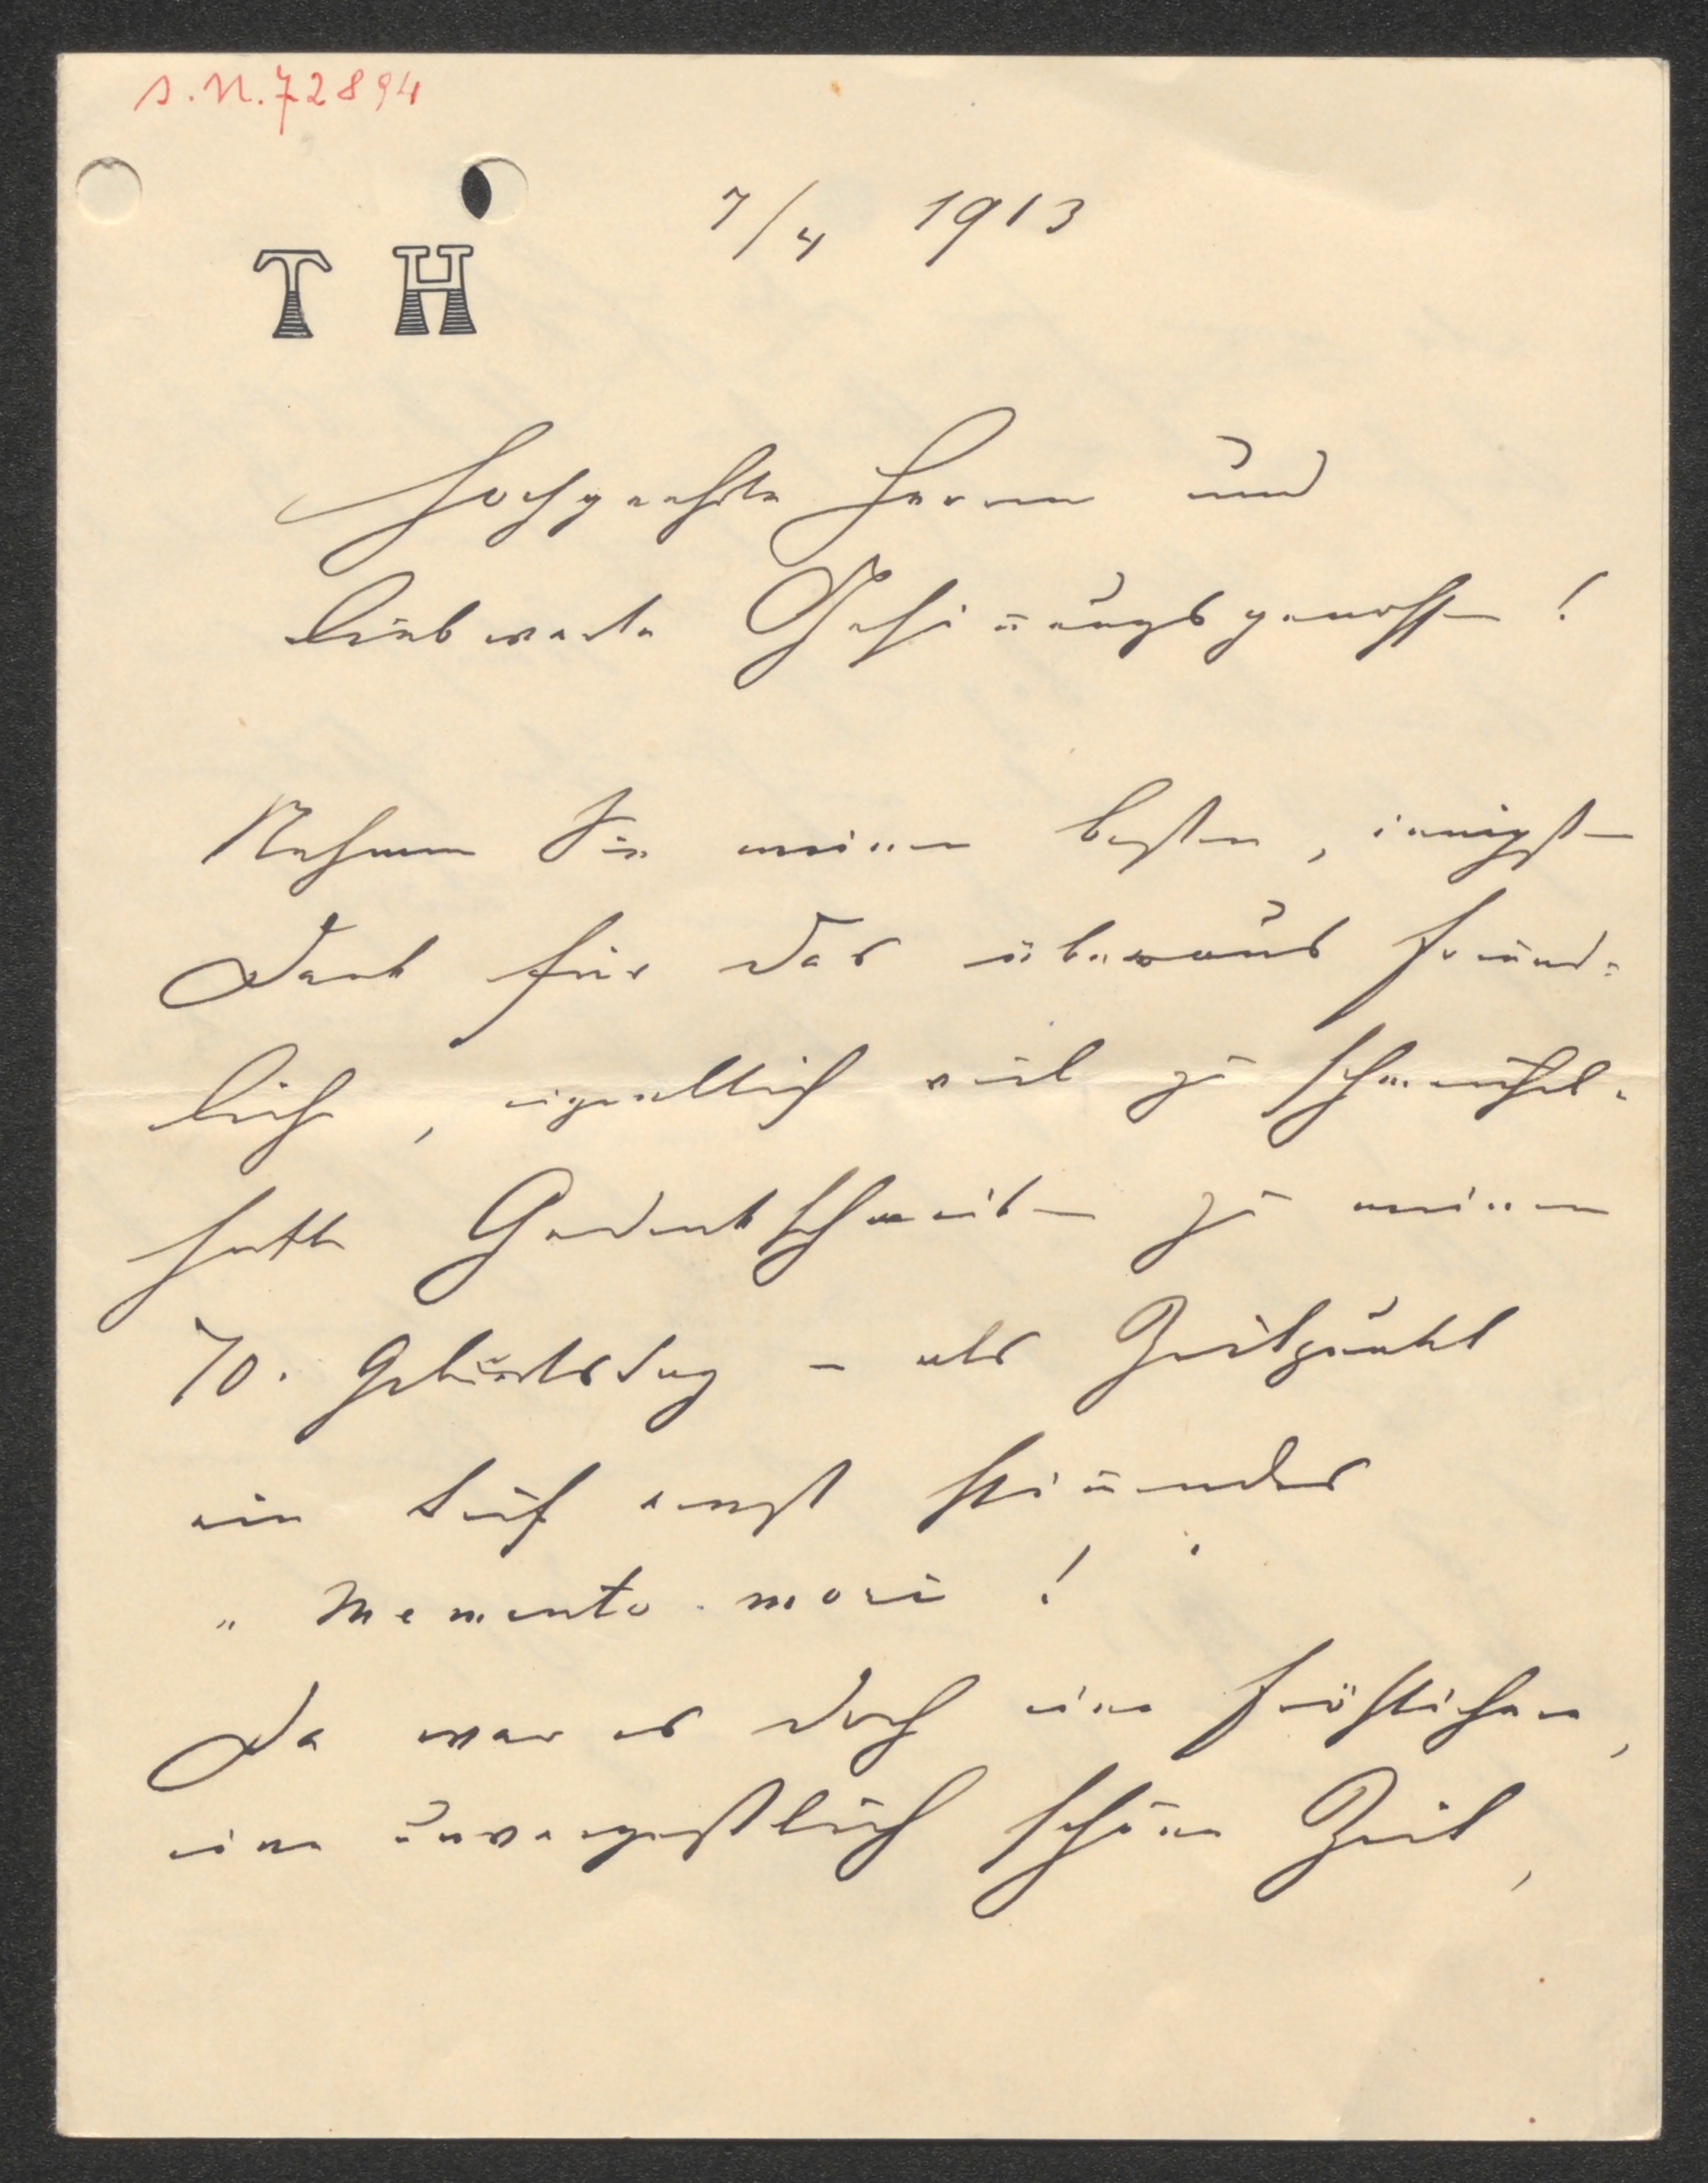 S.N. 72894
7/4 1913
T H
Hochgeehrte Herren und
liebwerte Gesinnungsgenossen!
Nehmen Sie meinen besten, innigsten
Dank für das überaus freund-
liche, eigentlich viel zu schmeichel-
hafte Gedenkschreiben zu meinem
70. Geburtstag – als Zeitpunkt
ein tief ernst stimmendes
„Memento mori!
Da war es doch eine fröhlichere,
eine unvergeßlich schöne Zeit,